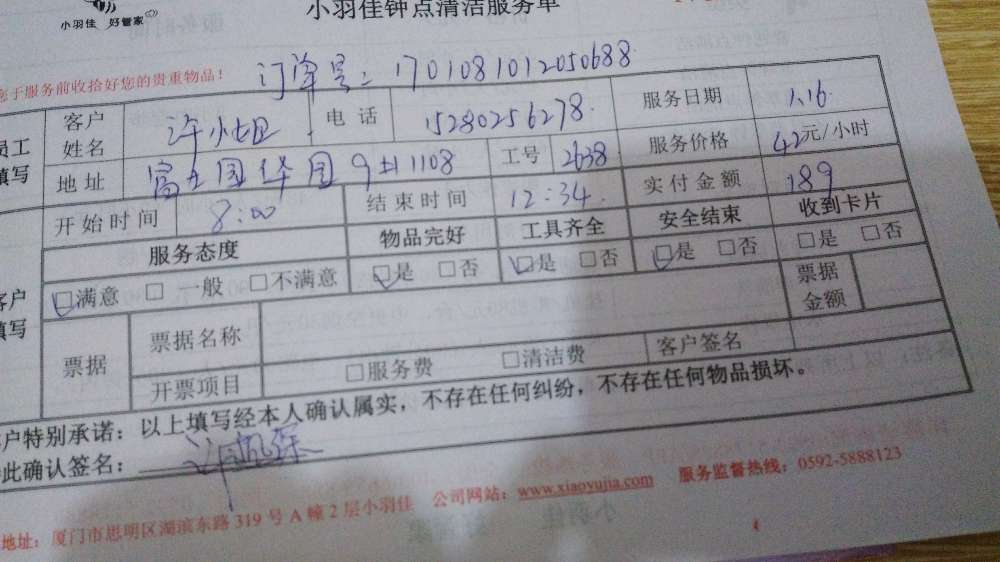 小羽佳 好管家
小羽佳钟点清洁服务单
您于服务前收拾好您的贵重物品！
订单号：1701081012050688
员工填写 客户姓名 许小姐 电话 15280256278. 服务日期 1.16.
地址 富立国华园9#1108 工号 2638 服务价格 42元/小时
开始时间 8:00 结束时间 12:34. 实付金额 189
客户填写 服务态度 物品完好 工具齐全 安全结束 收到卡片
□满意 □一般 □不满意 □是 □否 □是 □否 □是 □否 □是 □否
票据 票据名称 票据金额
开票项目 □服务费 □清洁费 客户签名
客户特别承诺：以上填写经本人确认属实，不存在任何纠纷，不存在任何物品损坏。
此确认签名：
地址：厦门市思明区湖滨东路319号A幢2层小羽佳 公司网站：www.xiaoyujia.com 服务监督热线：0592-5888123